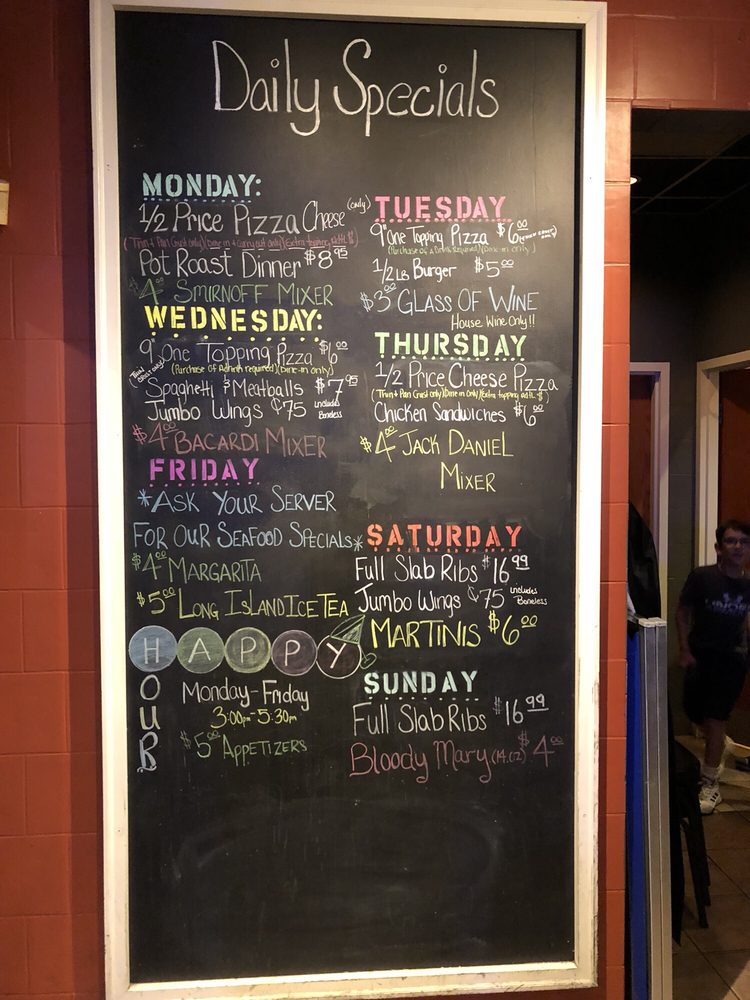 Daily Specials
MONDAY:
1/2 Price Pizza Cheese (only)
(Thin & Pan Crust only) (Dine-in & Carry out only) (Extra topping add'tl $)
Pot Roast Dinner $8.95
$4.00 SMIRNOFF MIXER
WEDNESDAY:
9" One Topping Pizza $6.00
(Thin crust only) (Purchase of a drink required) (Dine-in only)
Spaghetti & Meatballs $7.95
Jumbo Wings ¢75 includes Boneless
$4.00 BACARDI MIXER
FRIDAY
*ASK YOUR SERVER
FOR OUR SEAFOOD SPECIALS*
$4.00 MARGARITA
$5.00 LONG ISLAND ICE TEA
HAPPY
HOUR
Monday-Friday
3:00pm-5:30pm
$5.00 APPETIZERS
TUESDAY
9" One Topping Pizza $6.00
(Purchase of a Drink required) (Dine-in only)
1/2 Lb Burger $5.00
$3.00 GLASS OF WINE
House Wine Only!!
THURSDAY
1/2 Price Cheese Pizza
(Thin & Pan Crust only) (Dine in Only) (Extra topping add'tl $)
Chicken Sandwiches $6.00
$4.00 JACK DANIEL
MIXER
SATURDAY
Full Slab Ribs $16.99
Jumbo Wings ¢75 includes Boneless
MARTINIS $6.00
SUNDAY
Full Slab Ribs $16.99
Bloody Mary (14oz) $4.00